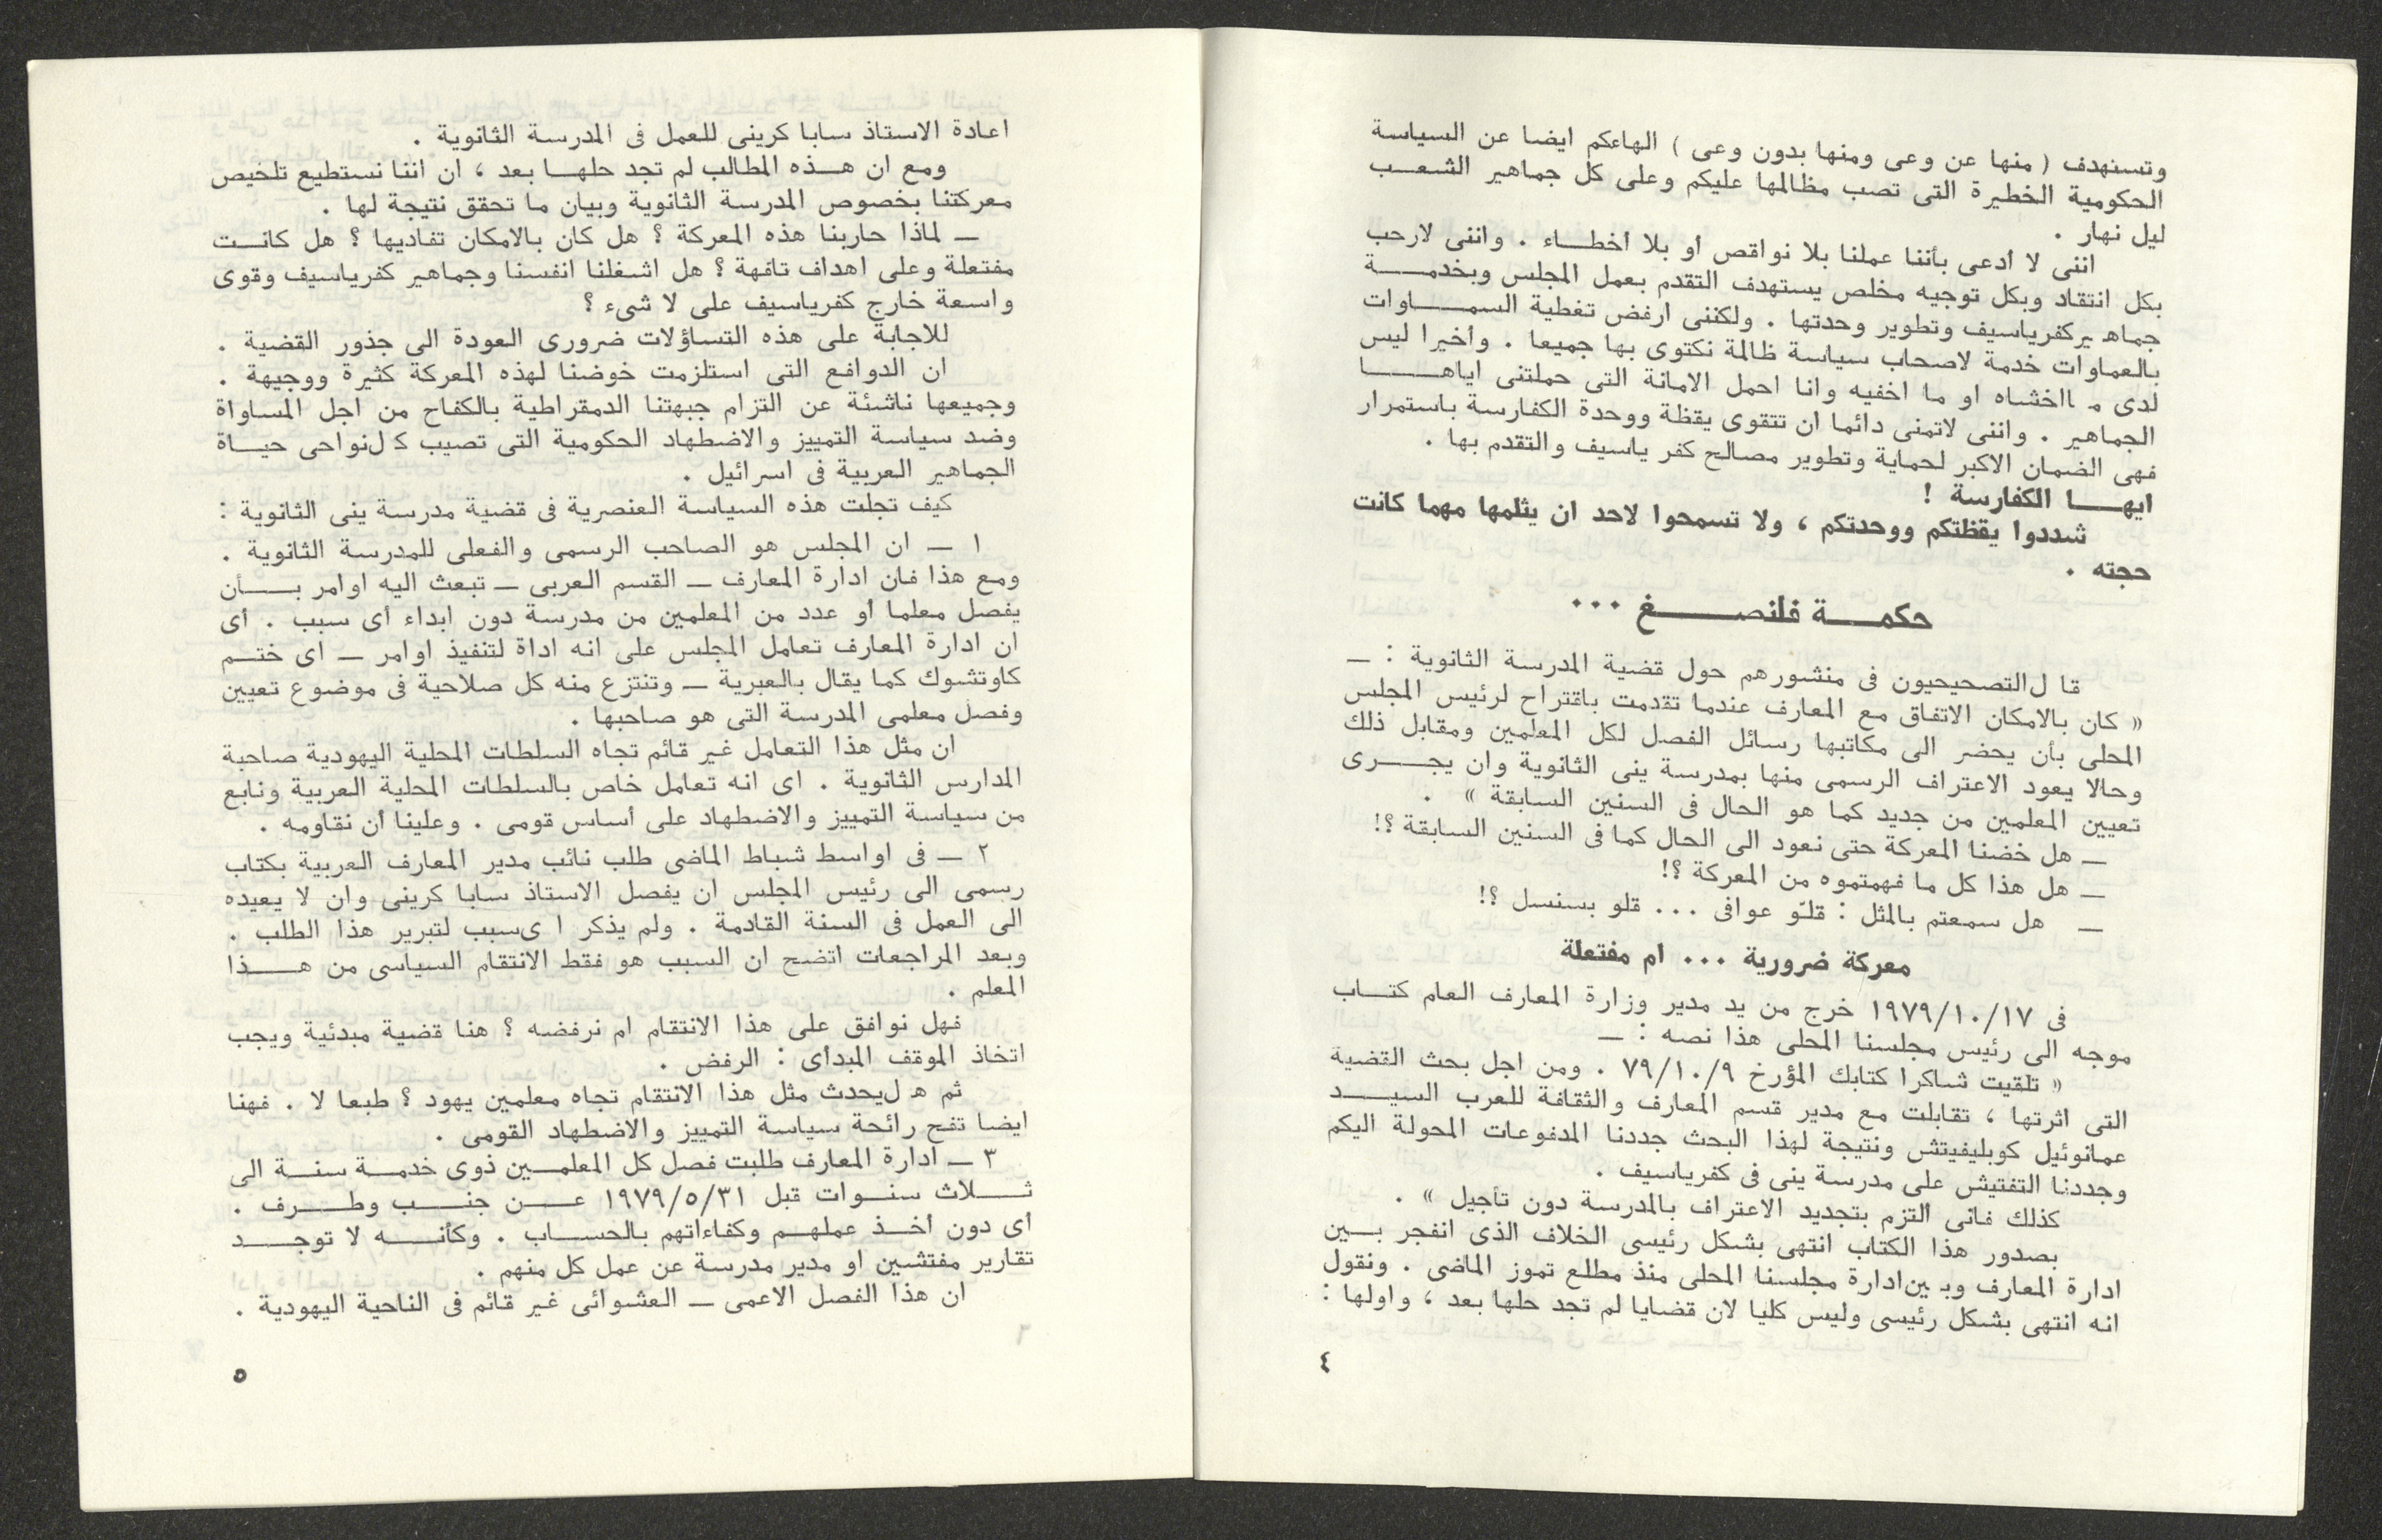 وتستهدف ( منها عن وعى ومنها بدون وعى ) الهاءكم ايضا عن السياسة
الحكومية الخطيرة التى تصب مظالمها عليكم وعلى كل جماهير الشعب
ليل نهار .
اننى لا أدعى بأننا عملنا بلا نواقص أو بلا أخطاء . واننى لارحب
بكل انتقاد وبكل توجيه مخلص يستهدف التقدم بعمل المجلس وبخدمة
جماه يركفرياسيف وتطوير وحدتها . ولكننى ارفض تغطية السماوات
بالعماوات خدمة لاصحاب سياسة ظالمة نكتوى بها جميعا . وأخيرا ليس
لدى م ااخشاه او ما اخفيه وانا احمل الامانة التى حملتنى اياها
الجماهير . واننى لاتمنى دائما ان تتقوى يقظة ووحدة الكفارسة باستمرار
فهى الضمان الاكبر لحماية وتطوير مصالح كفر ياسيف والتقدم بها .
ايها الكفارسة !
شددوا يقظتكم ووحدتكم ، ولا تسمحوا لاحد ان يثلمها مهما كانت
حجته .
حكمة فلنصغ ...
قا ل‌التصحيحيون فى منشورهم حول قضية المدرسة الثانوية : ـ
« كان بالامكان الاتفاق مع المعارف عندما تقدمت باقتراح لرئيس المجلس
المحلى بأن يحضر الى مكاتبها رسائل الفصل لكل المعلمين ومقابل ذلك
وحالا يعود الاعتراف الرسمى منها بمدرسة ينى الثانوية وان يجرى
تعيين المعلمين من جديد كما هو الحال فى السنين السابقة » .
ـ هل خضنا المعركة حتى نعود الى الحال كما فى السنين السابقة ؟!
ـ هل هذا كل ما فهمتموه من المعركة ؟!
ـ هل سمعتم بالمثل : قلّو عوافى ... قلو بسنسل ؟!
معركة ضرورية ... ام مفتعلة
فى ١٩٧٩/١٠/١٧ خرج من يد مدير وزارة المعارف العام كتاب
موجه الى رئيس مجلسنا المحلى هذا نصه : ـ
« تلقيت شاكرا كتابك المؤرخ ٧٩/١٠/٩ . ومن اجل بحث القضية
التى اثرتها ، تقابلت مع مدير قسم المعارف والثقافة للعرب السيد
عمانوئيل كوبليفيتش ونتيجة لهذا البحث جددنا المدفوعات المحولة اليكم
وجددنا التفتيش على مدرسة ينى فى كفرياسيف .
كذلك فانى ألتزم بتجديد الاعتراف بالمدرسة دون تأجيل » .
بصدور هذا الكتاب انتهى بشكل رئيسى الخلاف الذى انفجر بين
ادارة المعارف وب ين‌ادارة مجلسنا المحلى منذ مطلع تموز الماضى . ونقول
انه انتهى بشكل رئيسى وليس كليا لان قضايا لم تجد حلها بعد ، واولها :
٤
اعادة الاستاذ سابا كرينى للعمل فى المدرسة الثانوية .
ومع ان هذه المطالب لم تجد حلها بعد ، ان اننا نستطيع تلخيص
معركتنا بخصوص المدرسة الثانوية وبيان ما تحقق نتيجة لها .
ـ لماذا حاربنا هذه المعركة ؟ هل كان بالامكان تفاديها ؟ هل كانت
مفتعلة وعلى اهداف تافهة ؟ هل اشغلنا انفسنا وجماهير كفرياسيف وقوى
واسعة خارج كفرياسيف على لا شىء ؟
للاجابة على هذه التساؤلات ضرورى العودة الى جذور القضية .
ان الدوافع التى استلزمت خوضنا لهذه المعركة كثيرة ووجيهة .
وجميعها ناشئة عن التزام جبهتنا الدمقراطية بالكفاح من اجل المساواة
وضد سياسة التمييز والاضطهاد الحكومية التى تصيب ك ل‌نواحى حياة
الجماهير العربية فى اسرائيل .
كيف تجلت هذه السياسة العنصرية فى قضية مدرسة ينى الثانوية :
١ ـ ان المجلس هو الصاحب الرسمى والفعلى للمدرسة الثانوية .
ومع هذا فان ادارة المعارف ـ القسم العربى ـ تبعث اليه اوامر بأن
يفصل معلما أو عدد من المعلمين من مدرسة دون ابداء أى سبب . أى
ان ادارة المعارف تعامل المجلس على انه اداة لتنفيذ اوامر ـ اى ختم
كاوتشوك كما يقال بالعبرية ـ وتنتزع منه كل صلاحية فى موضوع تعيين
وفصل معلمى المدرسة التى هو صاحبها .
ان مثل هذا التعامل غير قائم تجاه السلطات المحلية اليهودية صاحبة
المدارس الثانوية . اى انه تعامل خاص بالسلطات المحلية العربية ونابع
من سياسة التمييز والاضطهاد على أساس قومى . وعلينا أن نقاومه .
٢ ـ فى اواسط شباط الماضى طلب نائب مدير المعارف العربية بكتاب
رسمى الى رئيس المجلس ان يفصل الاستاذ سابا كرينى وان لا يعيده
الى العمل فى السنة القادمة . ولم يذكر ا ى‌سبب لتبرير هذا الطلب .
وبعد المراجعات اتضح ان السبب هو فقط الانتقام السياسى من هذا
المعلم .
فهل نوافق على هذا الانتقام ام نرفضه ؟ هنا قضية مبدئية ويجب
اتخاذ الموقف المبدأى : الرفض .
ثم ه ل‌يحدث مثل هذا الانتقام تجاه معلمين يهود ؟ طبعا لا . فهنا
ايضا تفح رائحة سياسة التمييز والاضطهاد القومى .
٣ ـ ادارة المعارف طلبت فصل كل المعلمين ذوى خدمة سنة الى
ثلاث سنوات قبل ١٩٧٩/٥/٣١ عن جنب وطرف .
أى دون أخذ عملهم وكفاءاتهم بالحساب . وكأنه لا توجد
تقارير مفتشين او مدير مدرسة عن عمل كل منهم .
ان هذا الفصل الاعمى ـ العشوائى غير قائم فى الناحية اليهودية .
٥